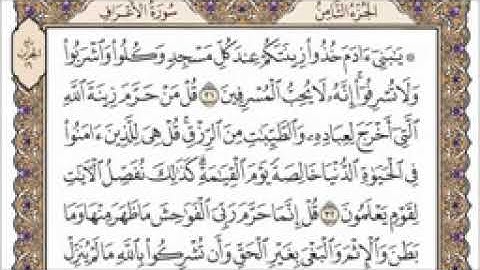 الجزء الثامن
سورة الأعراف
۞ يَٰبَنِىٓ ءَادَمَ خُذُوا۟ زِينَتَكُمْ عِندَ كُلِّ مَسْجِدٍ وَكُلُوا۟ وَٱشْرَبُوا۟
وَلَا تُسْرِفُوٓا۟ إِنَّهُۥ لَا يُحِبُّ ٱلْمُسْرِفِينَ ٣١ قُلْ مَنْ حَرَّمَ زِينَةَ ٱللَّهِ
ٱلَّتِىٓ أَخْرَجَ لِعِبَادِهِۦ وَٱلطَّيِّبَٰتِ مِنَ ٱلرِّزْقِ قُلْ هِىَ لِلَّذِينَ ءَامَنُوا۟
فِى ٱلْحَيَوٰةِ ٱلدُّنْيَا خَالِصَةً يَوْمَ ٱلْقِيَٰمَةِ كَذَٰلِكَ نُفَصِّلُ ٱلْءَايَٰتِ
لِقَوْمٍ يَعْلَمُونَ ٣٢ قُلْ إِنَّمَا حَرَّمَ رَبِّىَ ٱلْفَوَٰحِشَ مَا ظَهَرَ مِنْهَا وَمَا
بَطَنَ وَٱلْإِثْمَ وَٱلْبَغْىَ بِغَيْرِ ٱلْحَقِّ وَأَن تُشْرِكُوا۟ بِٱللَّهِ مَا لَمْ يُنَزِّلْ